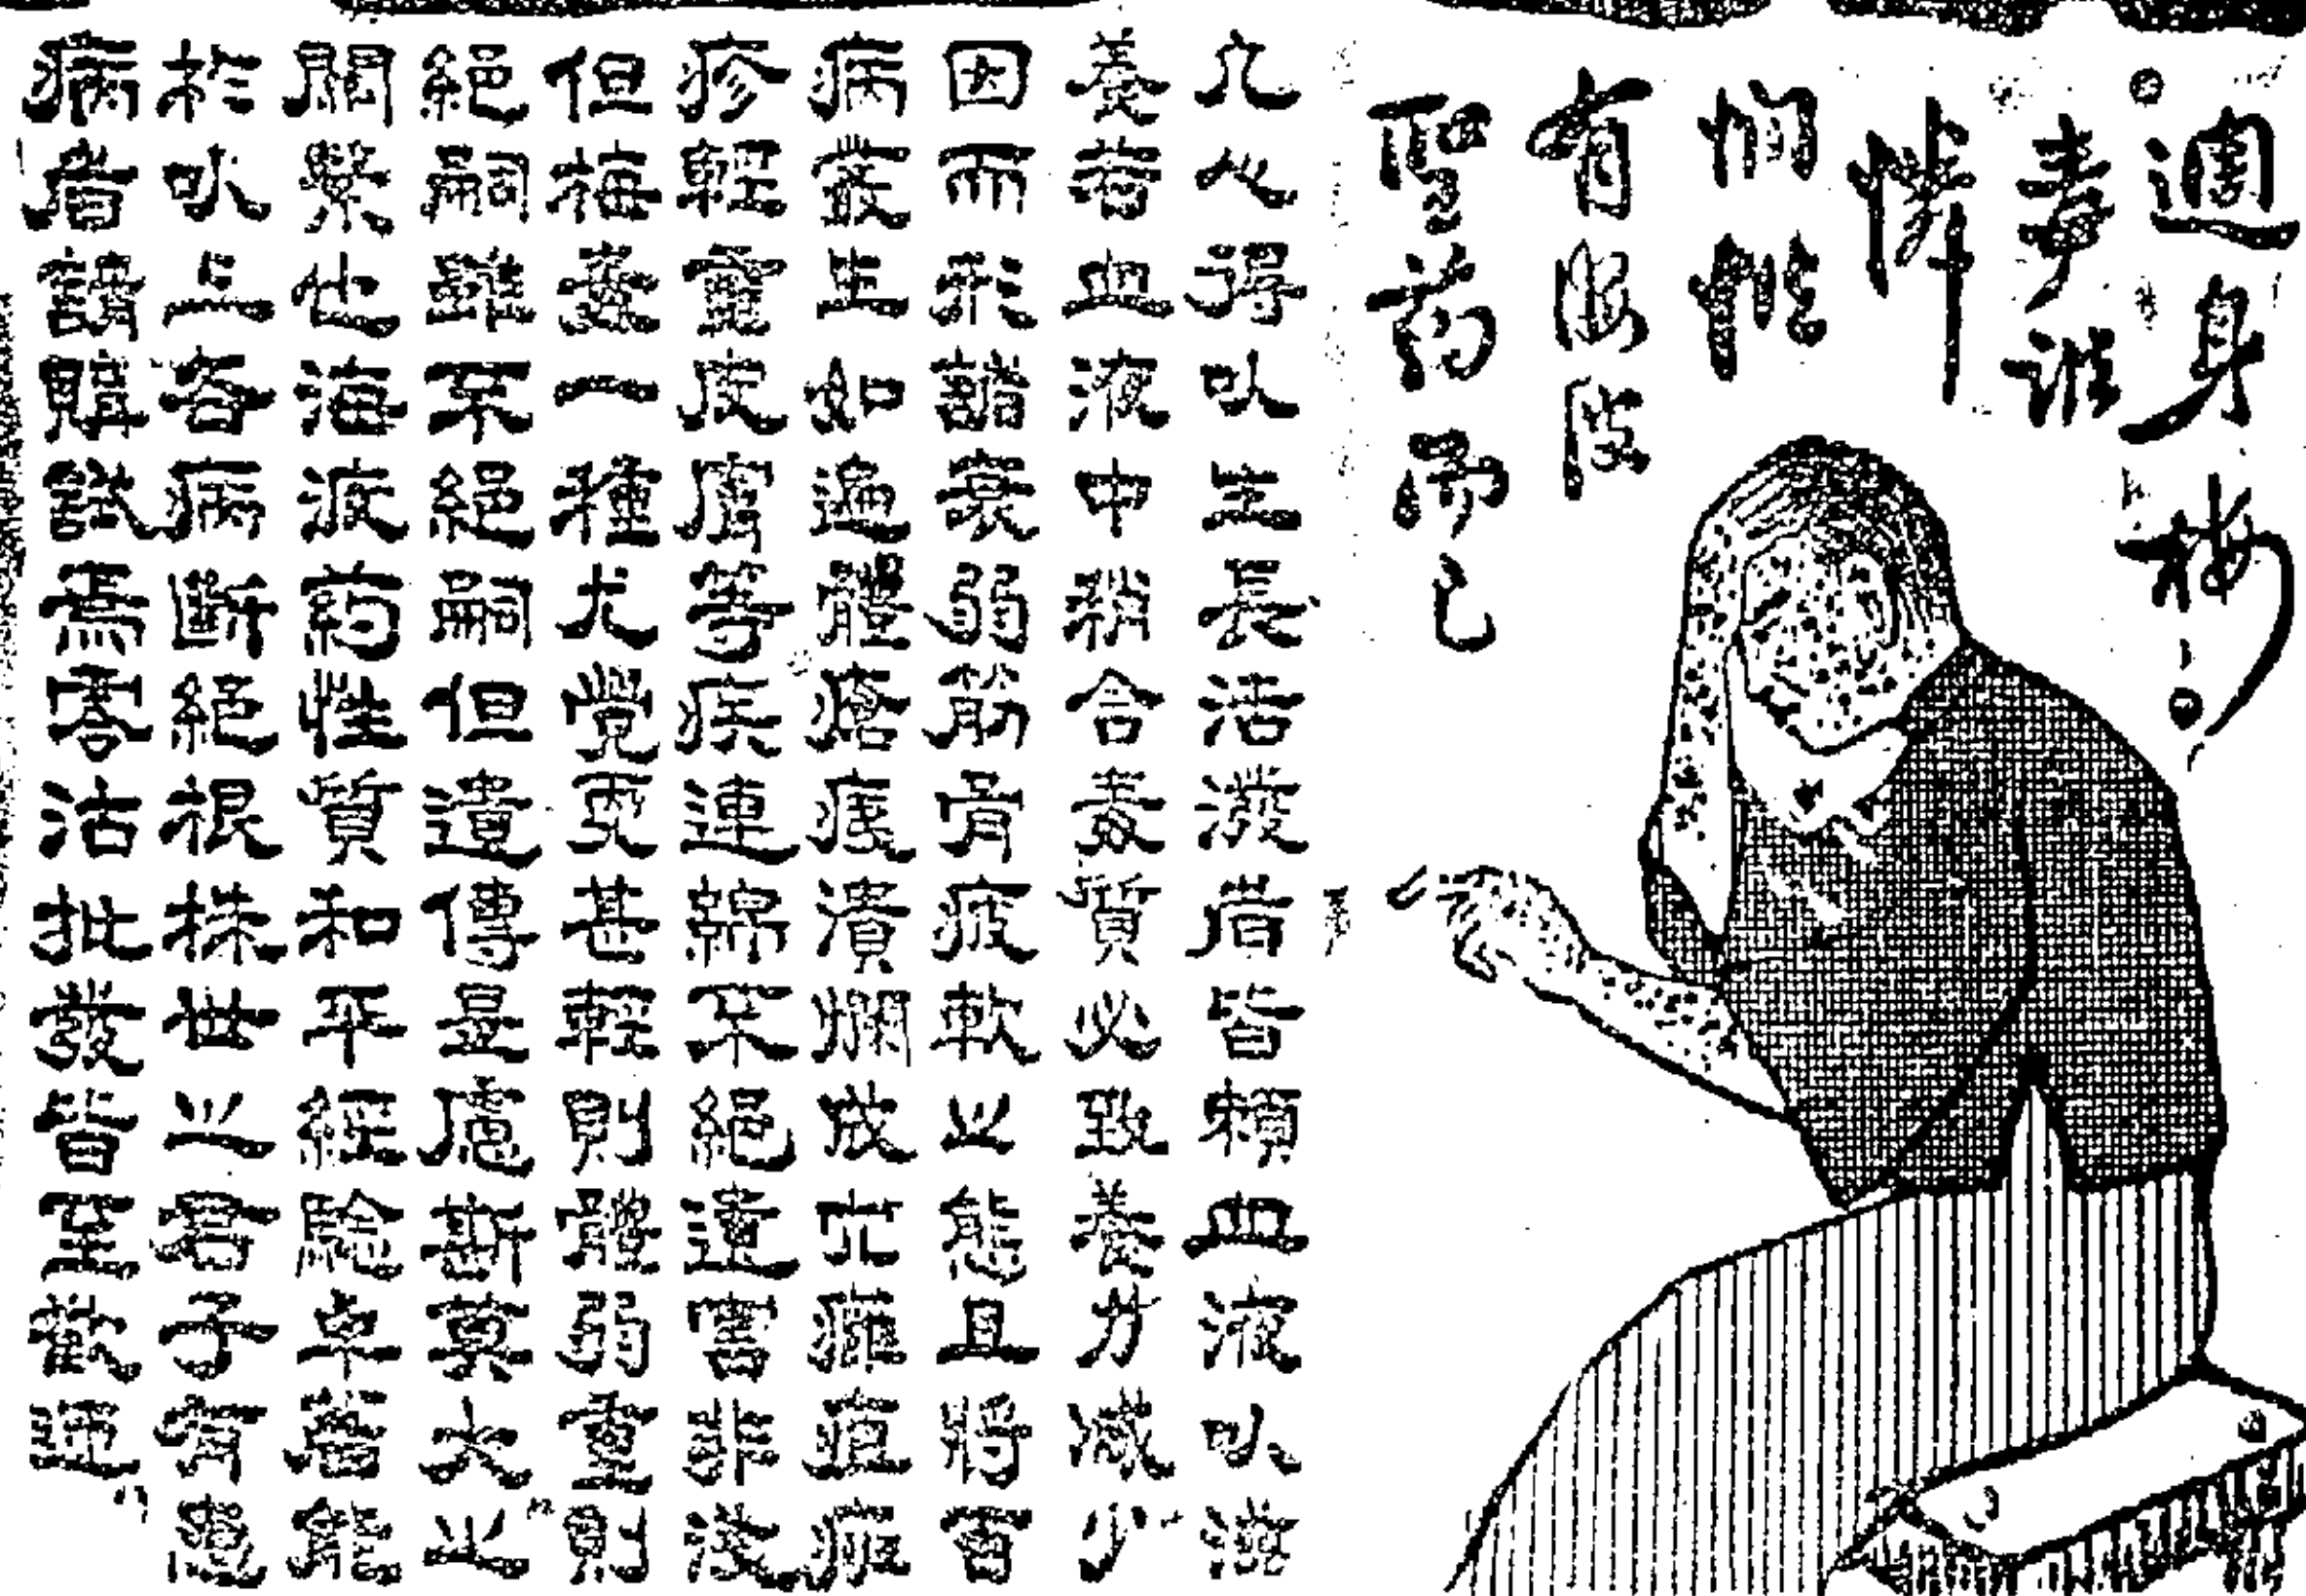 週身梅
毒誰
憐
憫惟
有海波
聖药而已
凡人得以生長活潑者皆賴血液以滋
養若血液中稍合毒質必致養力减少
因而形諸衰弱筋骨疲軟之態且將百
病叢生如遍體瘡痍潰爛成穴癰疽
疹輕重皮膚等疾連綿不絕遺害非淺
但梅毒一種尤覺更甚輕則體弱重則
絕嗣雖不絕嗣但遺傳是慮斯莫大之
關繫也海波药性質和平經驗卓著能
於以上各病斷絕根株世之君子有患
病者請購試焉零沽批發皆至歡迎